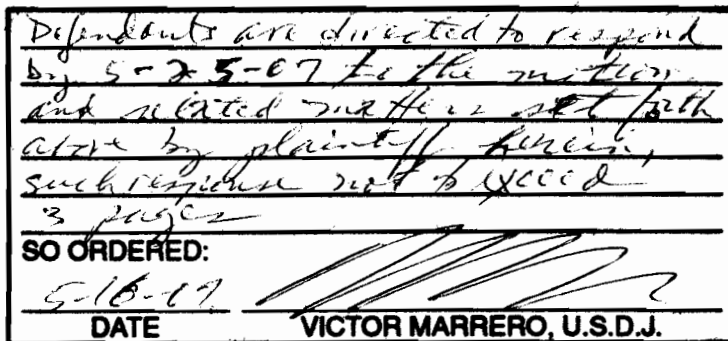 Defendants are directed to respond
by 5-25-07 to the motion
and related matters set forth
above by plaintiff herein,
such response not to exceed
3 pages
SO ORDERED:
5-16-07
DATE VICTOR MARRERO, U.S.D.J.